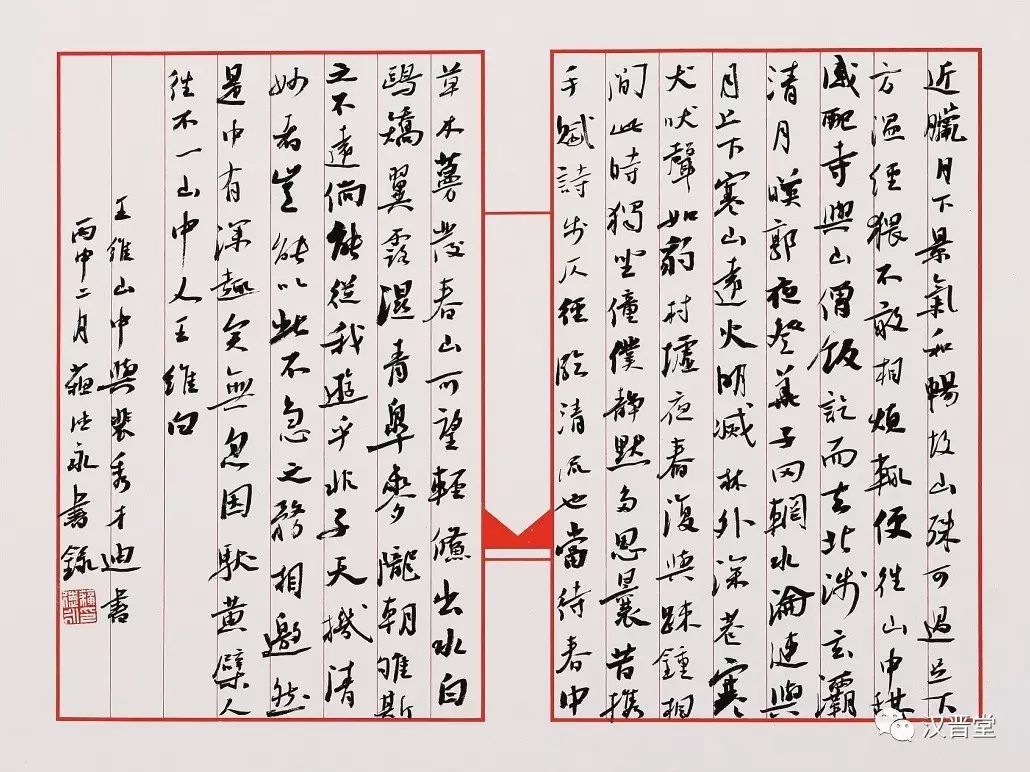 近臘月下景氣和暢故山殊可過足下
方溫經猥不敢相煩輒便往山中憩
感配寺與山僧飯訖而去北涉玄灞
清月暎郭夜登華子岡輞水淪漣與
月上下寒山遠火明滅林外深巷寒
犬吠聲如豹村墟夜舂復與踈鐘相
間此時獨坐僮僕靜默多思曩昔攜
手賦詩步仄徑臨清流也當待春中
草木蔓發春山可望輕鯈出水白
鷗矯翼露濕青皋麥隴朝雊斯
之不遠倘能從我遊乎非子天機清
妙者豈能以此不急之務相邀然
是中有深趣矣無忽因馱黃檗人
往不一山中人王維白
王維山中與裴秀才迪書
丙申二月永書錄
汉晋堂